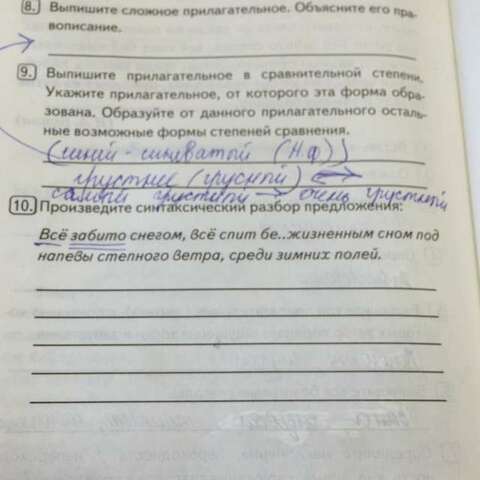 8. Выпишите сложное прилагательное. Объясните его пра-
вописание.
9. Выпишите прилагательное в сравнительной степени.
Укажите прилагательное, от которого эта форма обра-
зована. Образуйте от данного прилагательного осталь-
ные возможные формы степеней сравнения.
(синий - синеватый (Н.ф))
грустнее (грусной)
самый грустный → очень грустный
10. Произведите синтаксический разбор предложения:
Всё забито снегом, всё спит бе..жизненным сном под
напевы степного ветра, среди зимних полей.